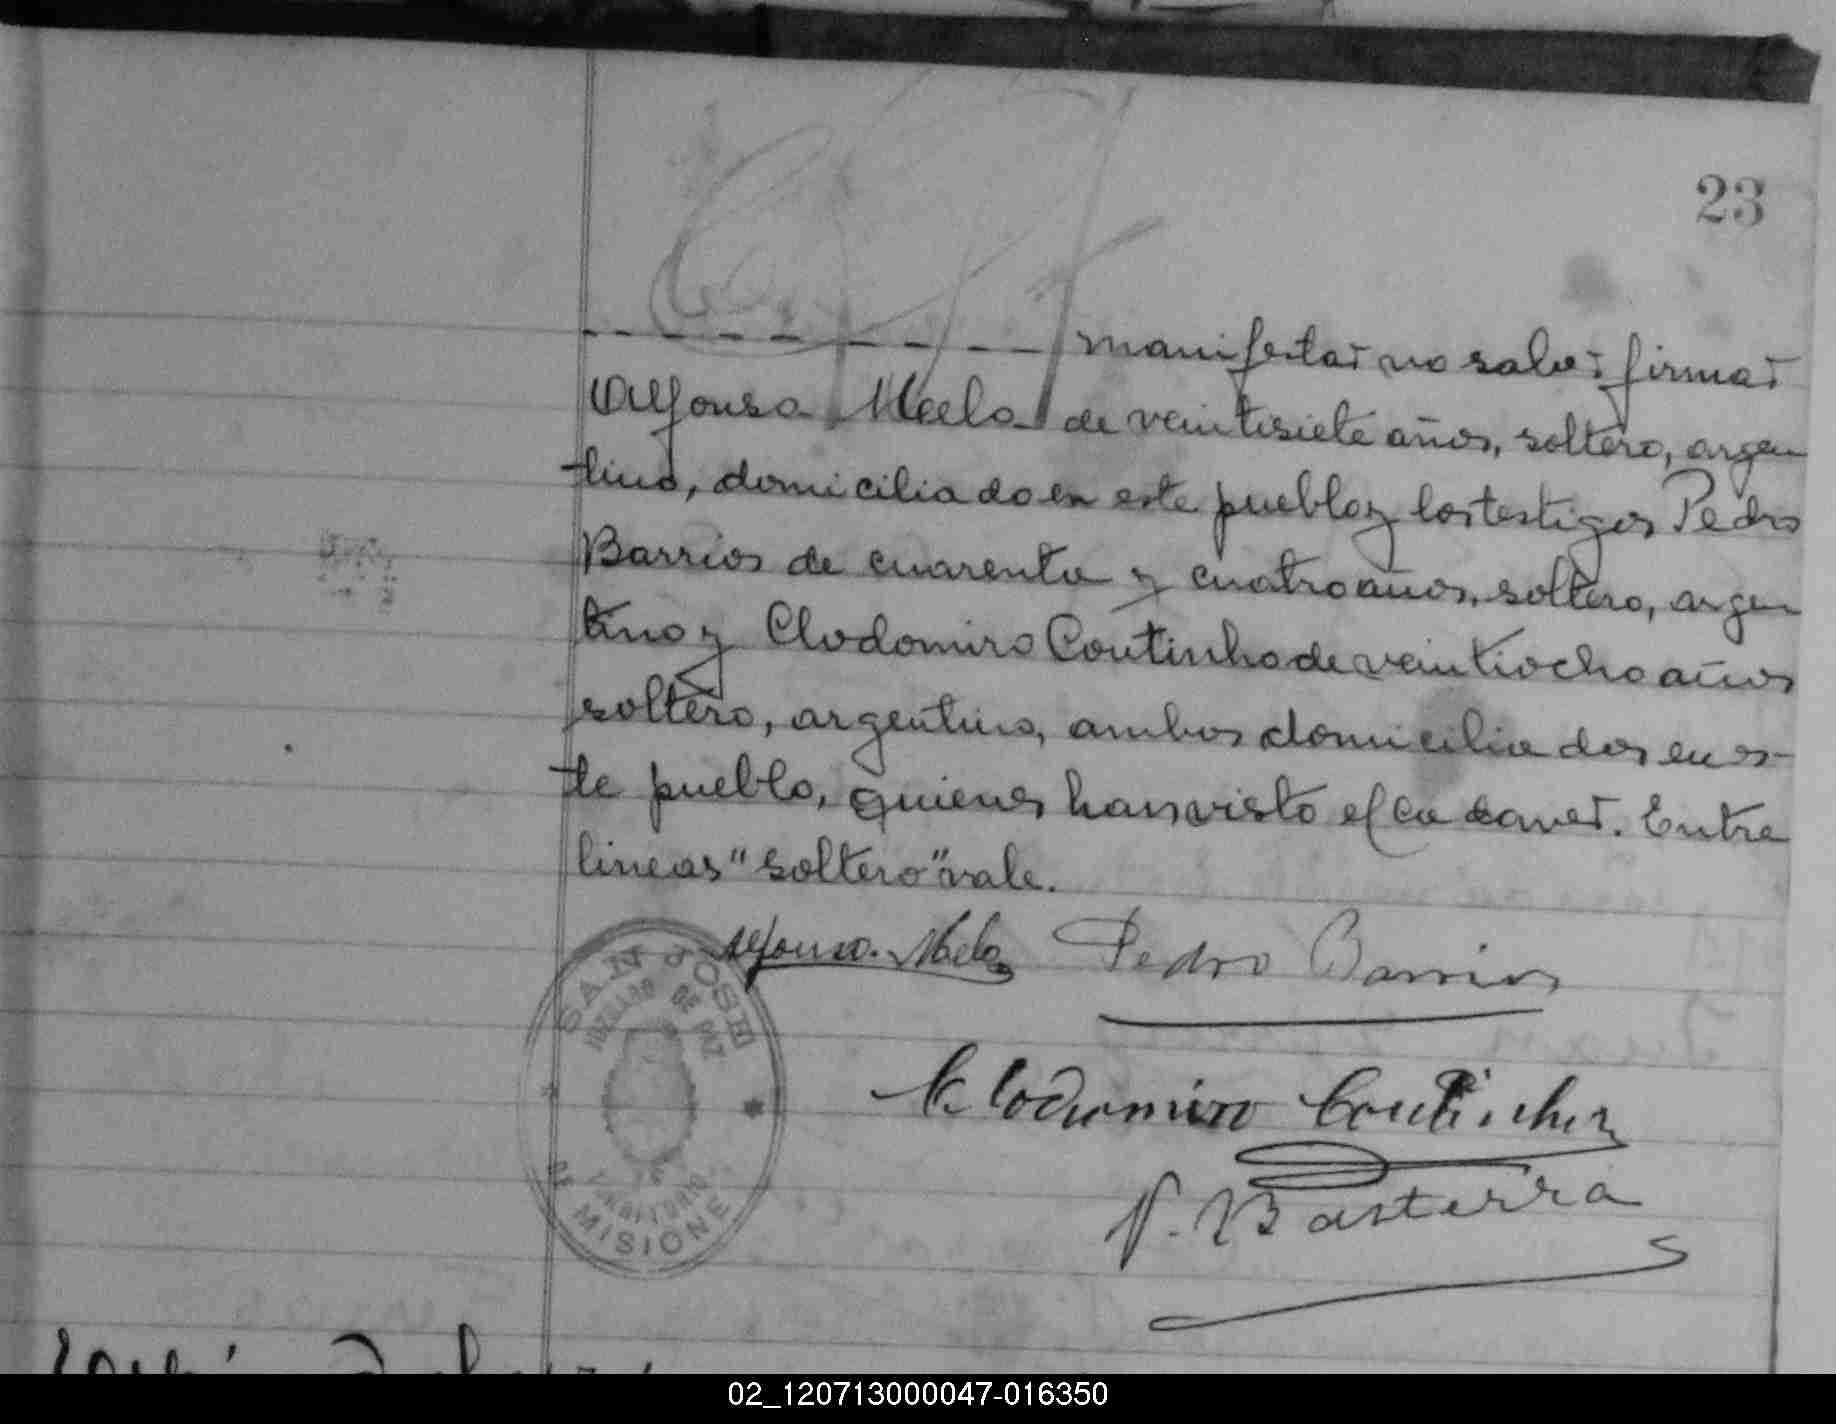 23
- - - - - - - - - manifestar no saber firmar
Alfonso Mela de veintisiete años, soltero, argen
tino, domiciliado en este pueblo y los testigos Pedro
Barrios de cuarenta y cuatro años, soltero, argen
tino y Clodomiro Coutinho de veintiocho años
soltero, argentino, ambos domiciliados en es-
te pueblo, quienes han visto el cadaver. Entre
lineas "soltero" vale.
Alfonso. Mela Pedro Barrios
SAN JOSE
JUZGADO DE PAZ
Clodomiro Coutinho
P. Basterra
TERRITORIO
DE MISIONES
02_120713000047-016350